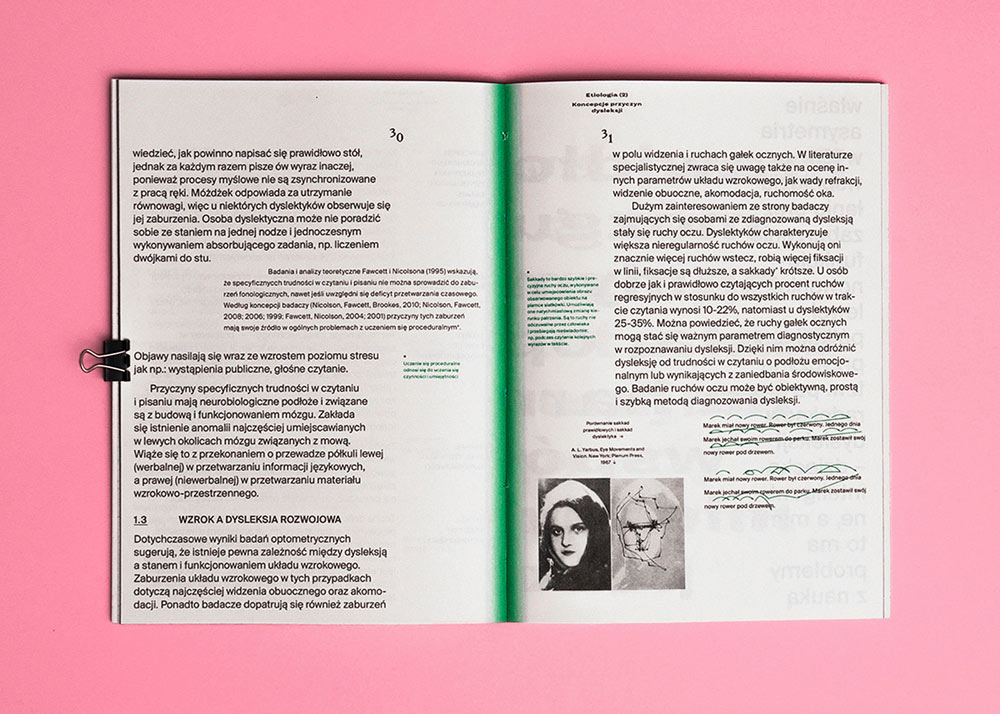 30
wiedzieć, jak powinno napisać się prawidłowo stół,
jednak za każdym razem pisze ów wyraz inaczej,
ponieważ procesy myślowe nie są zsynchronizowane
z pracą ręki. Móżdżek odpowiada za utrzymanie
równowagi, więc u niektórych dyslektyków obserwuje się
jej zaburzenia. Osoba dyslektyczna może nie poradzić
sobie ze staniem na jednej nodze i jednoczesnym
wykonywaniem absorbującego zadania, np. liczeniem
dwójkami do stu.
Badania i analizy teoretyczne Fawcett i Nicolsona (1995) wskazują,
że specyficznych trudności w czytaniu i pisaniu nie można sprowadzić do zabu-
rzeń fonologicznych, nawet jeśli uwzględni się deficyt przetwarzania czasowego.
Według koncepcji badaczy (Nicolson, Fawcett, Brookes, 2010; Nicolson, Fawcett,
2008; 2006; 1999; Fawcett, Nicolson, 2004; 2001) przyczyny tych zaburzeń
mają swoje źródło w ogólnych problemach z uczeniem się proceduralnym*.
Objawy nasilają się wraz ze wzrostem poziomu stresu
jak np.: wystąpienia publiczne, głośne czytanie.
*
Uczenie się proceduralne
odnosi się do uczenia się
czynności i umiejętności
Przyczyny specyficznych trudności w czytaniu
i pisaniu mają neurobiologiczne podłoże i związane
są z budową i funkcjonowaniem mózgu. Zakłada
się istnienie anomalii najczęściej umiejscawianych
w lewych okolicach mózgu związanych z mową.
Wiąże się to z przekonaniem o przewadze półkuli lewej
(werbalnej) w przetwarzaniu informacji językowych,
a prawej (niewerbalnej) w przetwarzaniu materiału
wzrokowo-przestrzennego.
1.3 WZROK A DYSLEKSJA ROZWOJOWA
Dotychczasowe wyniki badań optometrycznych
sugerują, że istnieje pewna zależność między dysleksją
a stanem i funkcjonowaniem układu wzrokowego.
Zaburzenia układu wzrokowego w tych przypadkach
dotyczą najczęściej widzenia obuocznego oraz akomo-
dacji. Ponadto badacze dopatrują się również zaburzeń
Etiologia (2)
Koncepcje przyczyn
dysleksji
31
w polu widzenia i ruchach gałek ocznych. W literaturze
specjalistycznej zwraca się uwagę także na ocenę in-
nych parametrów układu wzrokowego, jak wady refrakcji,
widzenie obuoczne, akomodacja, ruchomość oka.
Dużym zainteresowaniem ze strony badaczy
zajmujących się osobami ze zdiagnozowaną dysleksją
stały się ruchy oczu. Dyslektyków charakteryzuje
większa nieregularność ruchów oczu. Wykonują oni
znacznie więcej ruchów wstecz, robią więcej fiksacji
w linii, fiksacje są dłuższe, a sakkady* krótsze. U osób
dobrze jak i prawidłowo czytających procent ruchów
regresyjnych w stosunku do wszystkich ruchów w trak-
cie czytania wynosi 10-22%, natomiast u dyslektyków
25-35%. Można powiedzieć, że ruchy gałek ocznych
mogą stać się ważnym parametrem diagnostycznym
w rozpoznawaniu dysleksji. Dzięki nim można odróżnić
dysleksję od trudności w czytaniu o podłożu emocjo-
nalnym lub wynikających z zaniedbania środowiskowe-
go. Badanie ruchów oczu może być obiektywną, prostą
i szybką metodą diagnozowania dysleksji.
*
Sakkady to bardzo szybkie i pre-
cyzyjne ruchy oczu, wykonywane
w celu umiejscowienia obrazu
obserwowanego obiektu na
plamce siatkówki. Umożliwiają
one natychmiastową zmianę kie-
runku patrzenia. Są to ruchy nie
odczuwalne przez człowieka
i przebiegają nieświadomie,
np. podczas czytania kolejnych
wyrazów w tekście.
Porównanie sakkad
prawidłowych i sakkad
dyslektyka →
A. L. Yarbus, Eye Movements and
Vision. New York: Plenum Press,
1967 ↓
Marek miał nowy rower. Rower był czerwony. Jednego dnia
Marek jechał swoim rowerem do parku. Marek zostawił swój
nowy rower pod drzewem.
Marek miał nowy rower. Rower był czerwony. Jednego dnia
Marek jechał swoim rowerem do parku. Marek zostawił swój
nowy rower pod drzewem.